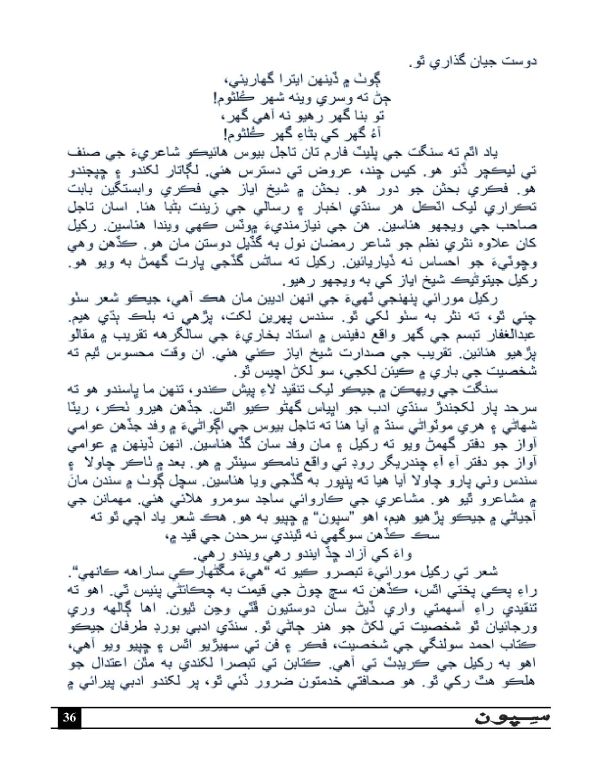 دوست جيان گذاري ٿو.
ڳوٺ ۾ ڏينهن ايترا گھاريئي،
ڄڻ ته وسري ويئه شهر ڪُلثوم!
تو بنا گھر رهيو نه آهي گھر،
آءُ گھر کي بڻاءِ گھر ڪُلثوم!
ياد اٿم ته سنگت جي پليٽ فارم تان تاجل بيوس هائيڪو شاعريءَ جي صنف
تي ليڪچر ڏنو هو. کيس ڇند، عروض تي دسترس هئي. لڳاتار لکندو ۽ ڇپجندو
هو. فڪري بحثن جو دور هو. بحثن ۾ شيخ اياز جي فڪري وابستگين بابت
تڪراري ليک اٽڪل هر سنڌي اخبار ۽ رسالي جي زينت بڻبا هئا. اسان تاجل
صاحب جي ويجھو هئاسين. هن جي نيازمنديءَ ۾ وٽس ڪهي ويندا هئاسين. رکيل
کان علاوه نثري نظم جو شاعر رمضان نول به گڏيل دوستن مان هو. ڪڏهن وهي
وڇوٽيءَ جو احساس نه ڏياريائين. رکيل ته ساڻس گڏجي ڀارت گھمڻ به ويو هو.
رکيل جيتوڻيڪ شيخ اياز کي به ويجھو رهيو.
رکيل مورائي پنهنجي ٽهيءَ جي انهن اديبن مان هڪ آهي، جيڪو شعر سٺو
چئي ٿو، ته نثر به سٺو لکي ٿو. سندس پهرين لکت، پڙهي نه بلڪ ٻڌي هيم.
عبدالغفار تبسم جي گھر واقع دفينس ۾ استاد بخاريءَ جي سالگرهه تقريب ۾ مقالو
پڙهيو هئائين. تقريب جي صدارت شيخ اياز ڪئي هئي. ان وقت محسوس ٿيم ته
شخصيت جي باري ۾ ڪيئن لکجي، سو لکڻ اچيس ٿو.
سنگت جي ويهڪن ۾ جيڪو ليک تنقيد لاءِ پيش ڪندو، تنهن ما ڀاسندو هو ته
سرحد پار لکجندڙ سنڌي ادب جو اڀياس گھڻو ڪيو اٿس. جڏهن هيرو ٺڪر، ريٽا
شهاڻي ۽ هري موٽواڻي سنڌ ۾ آيا هئا ته تاجل بيوس جي اڳواڻيءَ ۾ وفد جڏهن عوامي
آواز جو دفتر گھمڻ ويو ته رکيل ۽ مان وفد سان گڏ هئاسين. انهن ڏينهن ۾ عوامي
آواز جو دفتر آءِ آءِ چندريگر روڊ تي واقع نامڪو سينٽر ۾ هو. بعد ۾ ٺاڪر چاولا ۽
سندس وني پارو چاولا آيا هيا ته ڀنڀور به گڏجي ويا هئاسين. سچل ڳوٺ ۾ سندن مانَ
۾ مشاعرو ٿيو هو. مشاعري جي ڪاروائي ساجد سومرو هلائي هئي. مهمانن جي
آجياڻي ۾ جيڪو پڙهيو هيم، اهو ”سپون“ ۾ ڇپيو به هو. هڪ شعر ياد اچي ٿو ته
سڪ ڪڏهن سوگهي نه ٿيندي سرحدن جي قيد ۾،
واءَ کي آزاد ڇڏ ايندو رهي ويندو رهي.
شعر تي رکيل مورائيءَ تبصرو ڪيو ته ”هيءَ مڱڻهار کي ساراهه کانهي“.
راءِ پڪي پختي اٿس، ڪڏهن ته سچ چوڻ جي قيمت به چڪائڻي پئيس ٿي. اهو ته
تنقيدي راءِ آسهمتي واري ڏيڻ سان دوستيون ڦٽي وڃن ٿيون. اها ڳالهه وري
ورجايان ٿو شخصيت تي لکڻ جو هنر ڄاڻي ٿو. سنڌي ادبي بورڊ طرفان جيڪو
ڪتاب احمد سولنگي جي شخصيت، فڪر ۽ فن تي سهيڙيو اٿس ۽ ڇپيو ويو آهي،
اهو به رکيل جي ڪريڊٽ تي آهي. ڪتابن تي تبصرا لکندي به مٿن اعتدال جو
هلڪو هٿ رکي ٿو. هو صحافتي خدمتون ضرور ڏئي ٿو، پر لکندو ادبي پيرائي ۾
سپون
36